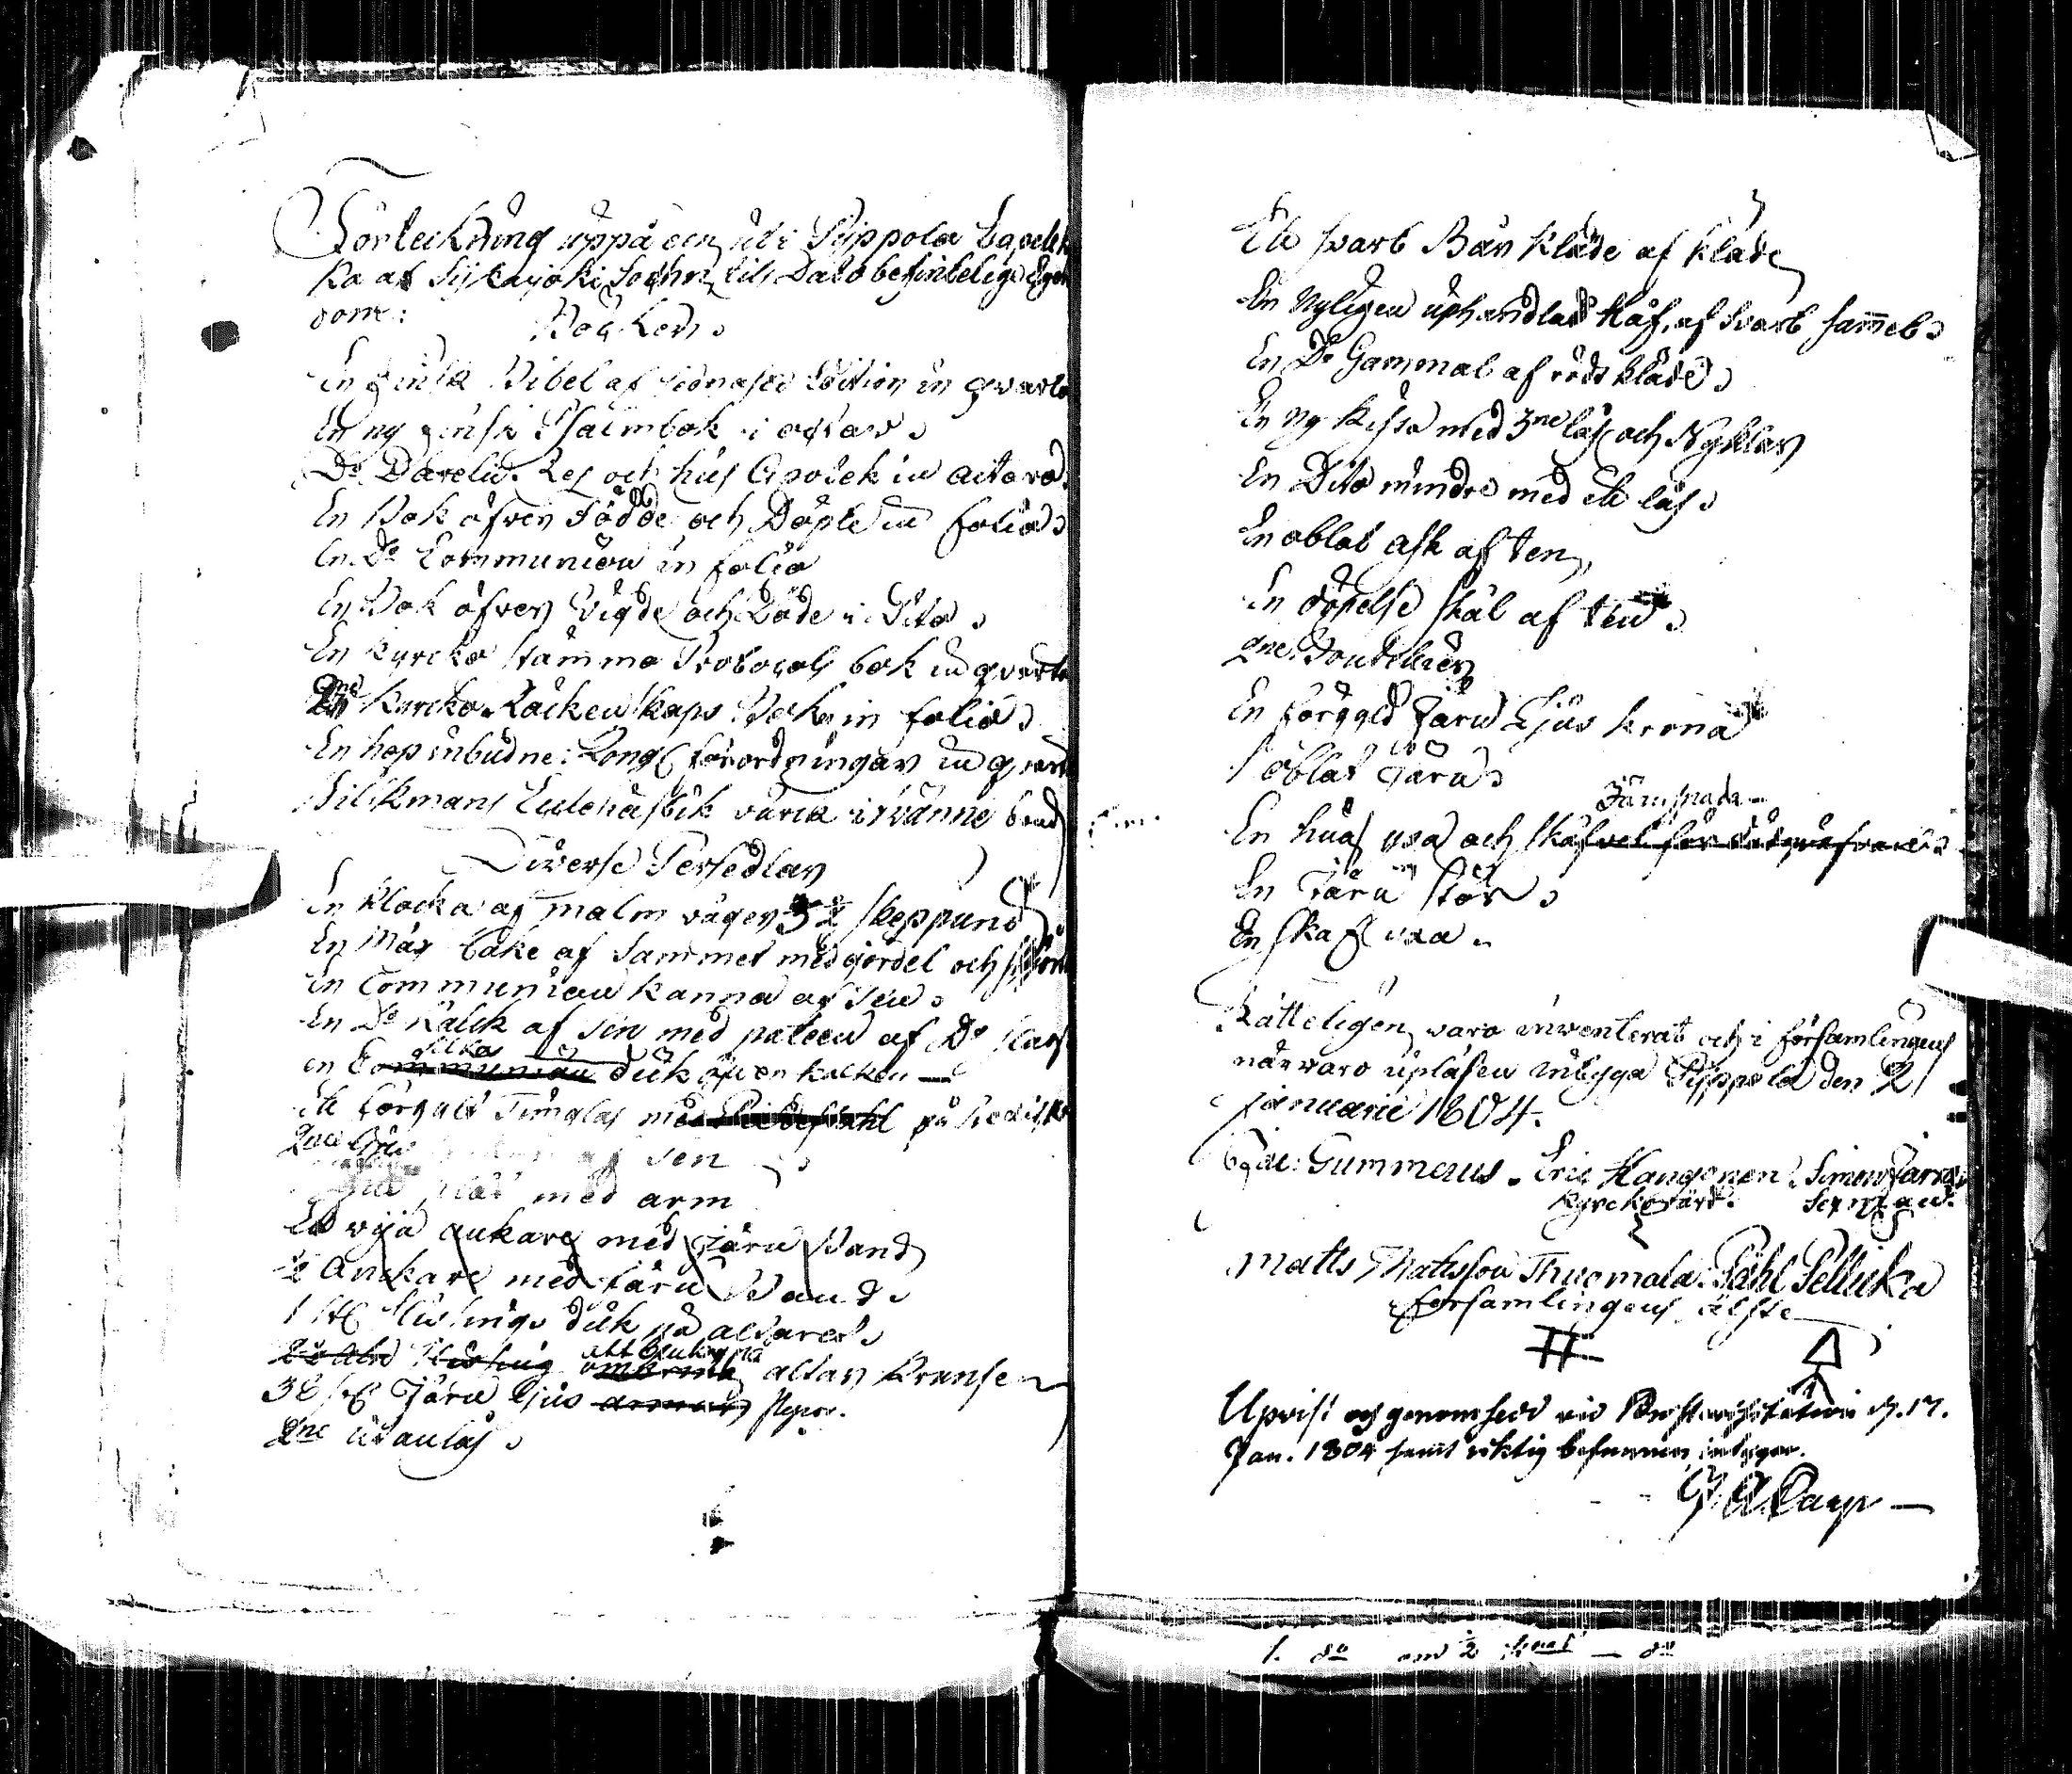 Förteckning uppå den uti Pippola Capelkyr
ka af Sijkajoki Sochn till Dato befintelige Egen
dom:
Böcker
En Finsk Bibel af sednaste Edition in qvarto
En ny Finsk Psalmbok i octav
Do Darelii Res och hus Apotek in
En Bok öfver Födde och Döpte in folio
En Do Communion in folio
En Bok öfver Vigde och Döde i Dito
En kyrcko stämmo Protocols bok in qvarto
2ne Kyrcko Räckenskaps Böcker in folio
En hop inbudne Kongl förordningar in qvart
värck i tvänne band
Diverse Persedlar
En Klocka af malm väger 3½ skeppund
En Mäss hake af Sammet med gördel och
En Communion kanna af ten
En Do Kalck af ten med pateen af Do
en silkes duk öfver kalcken
Ett förgylt Timglas med på Predikst
2ne ten
med arm
Ett nya ankare med Järn Band
½ Anckare med järn Band
1 st duk på altaret
altar Kranse
38 st Järn Ljus
2ne utanlås
Ett svart Bår kläde af kläde
En Nyligen uphandlad Håf af svart sammet
En Do Gammal af rödt kläde
En ny kista med 3ne lås och Nyklar
En Dito mindre med ett lås
En oblat ask af ten
En döpelse skål af ten
2ne
En förgyld Järn Ljus krona
1 oblat Järn
Järnspada
En huas yxa och
En Järn stör
En skaf yxa
Rätteligen vara inventerat och i församlingens
närvaro upläsen intyga Pippola den 2
Januarii 1804.
Gummerus. Eric Kangonen Simon
Kyrckovärd. Sexman
Matts Mattsson Thuomala Påhl Pellicka
församlingens älste
Upvist och genomsedd vid Prostvisitation d. 17.
Jan. 1804 samt riktig befunnen, intygar.
1. do